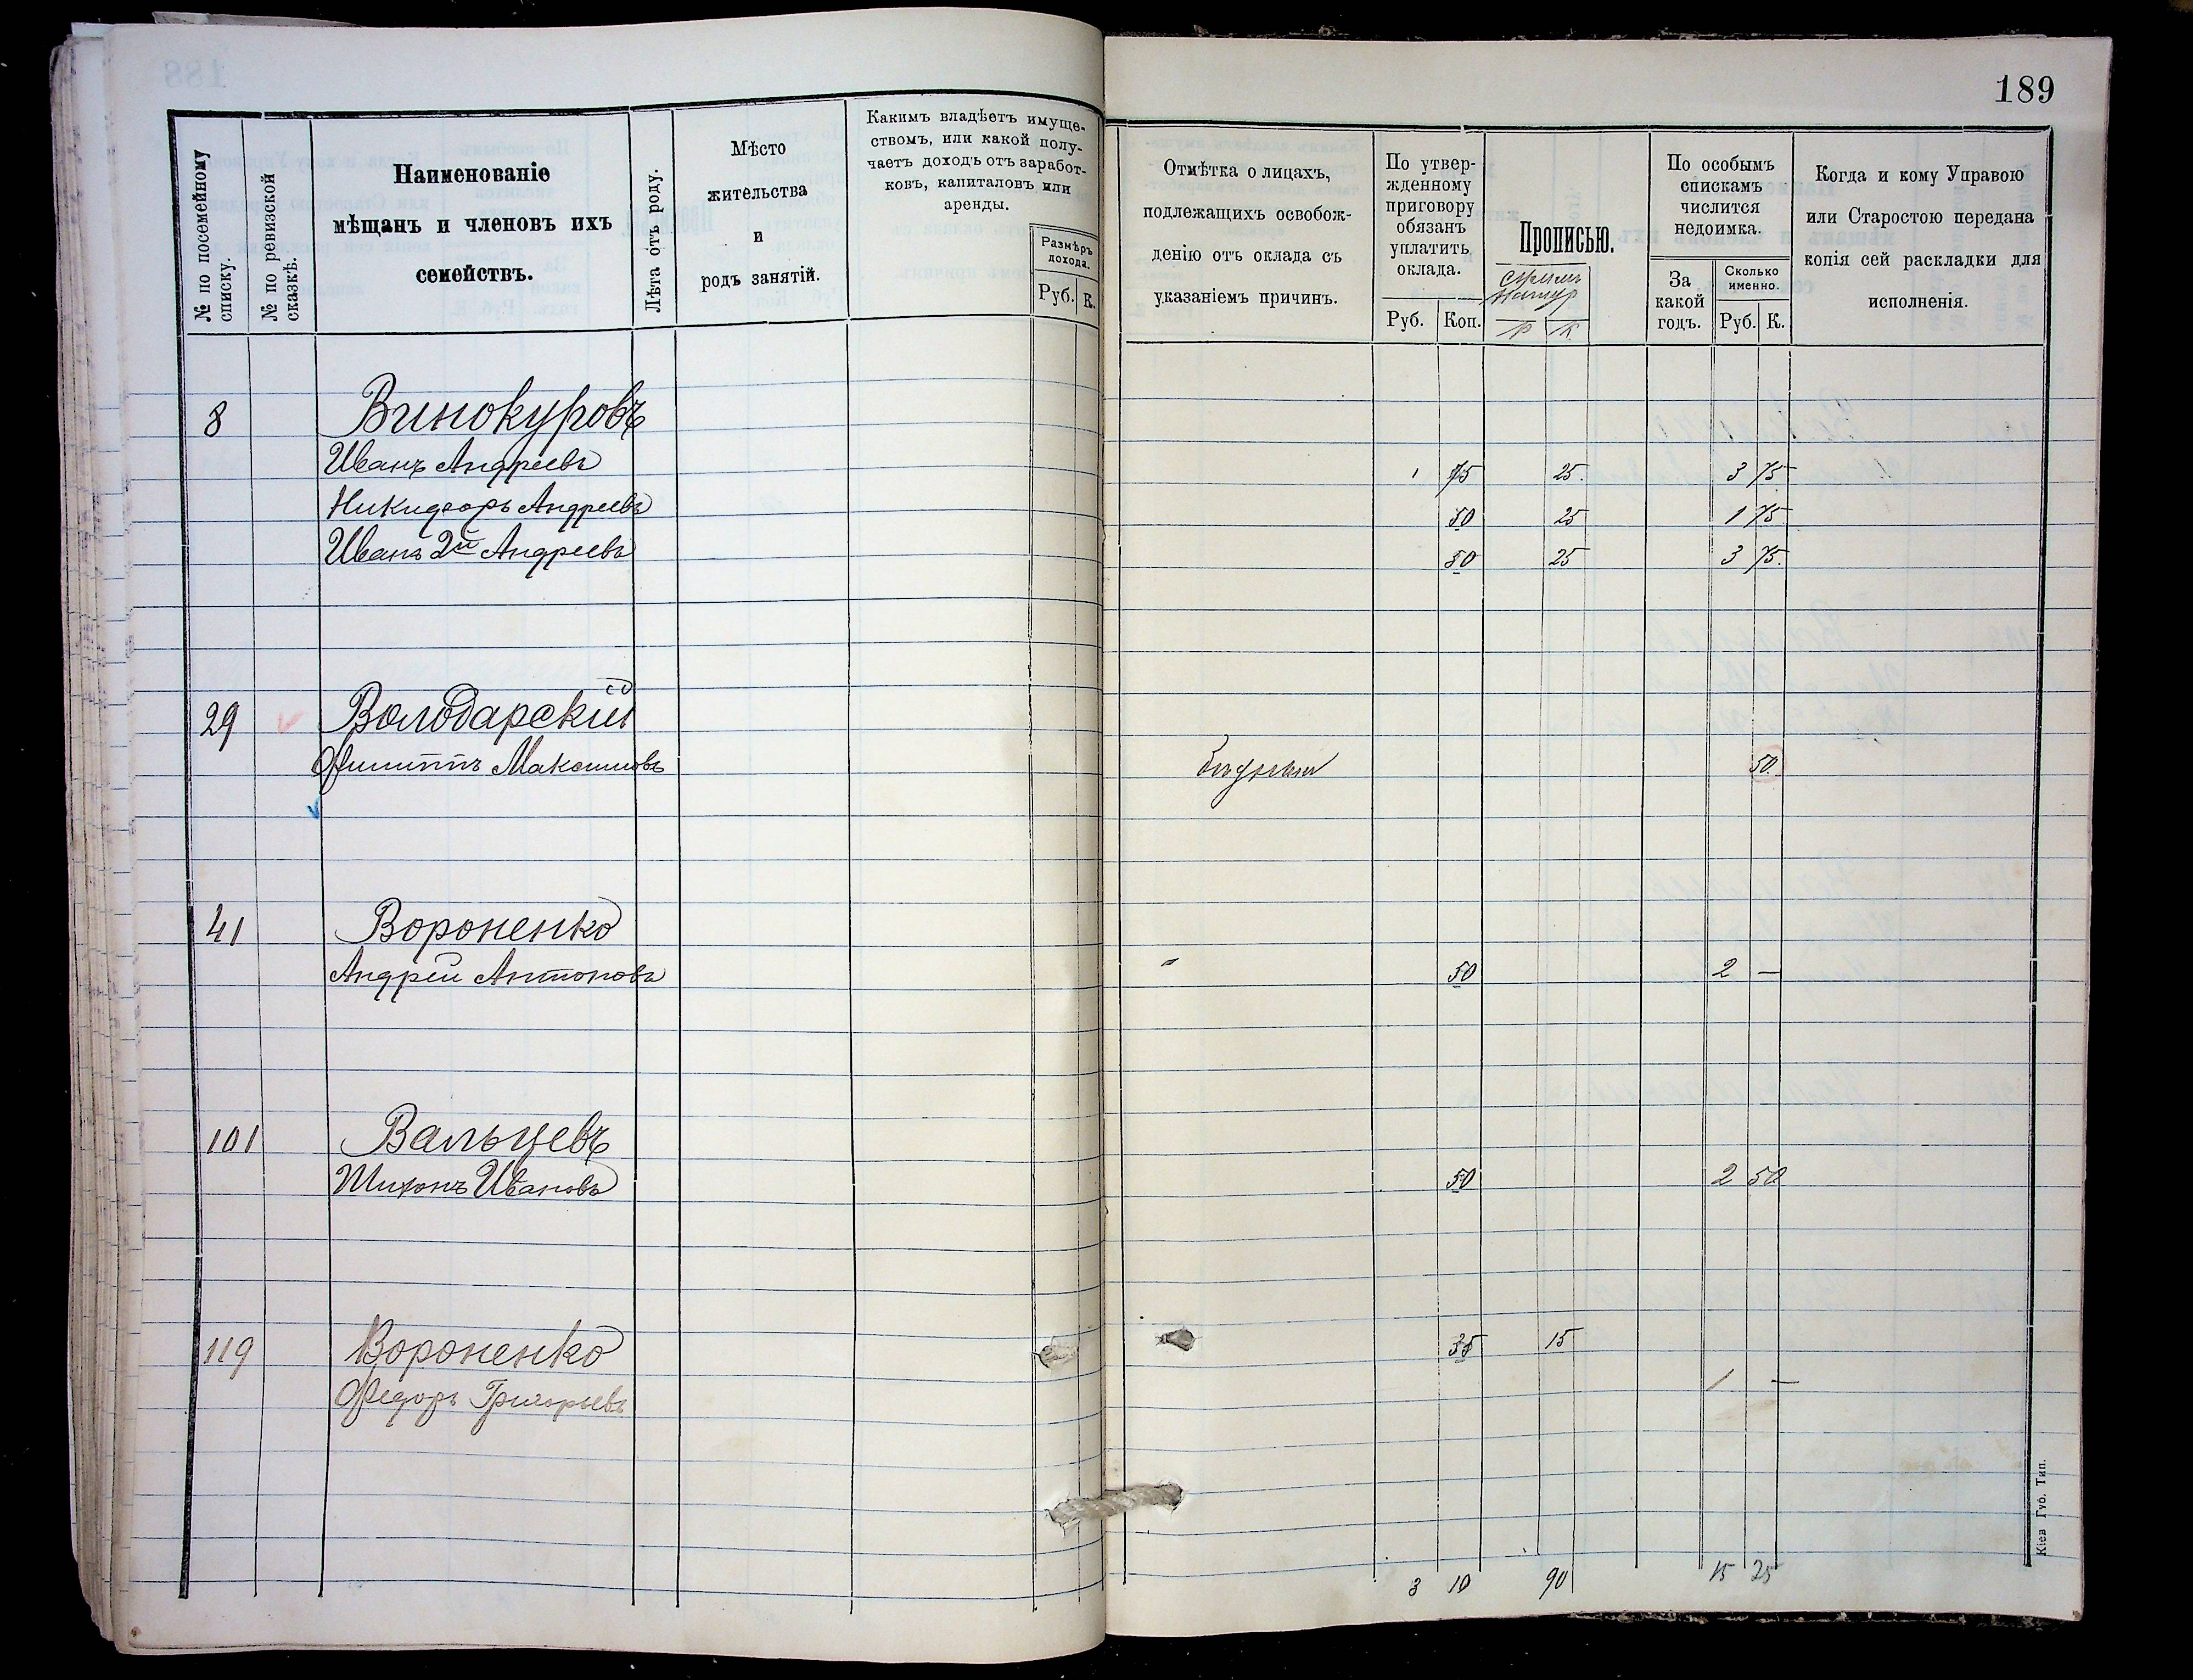 189
№ по посемейному списку.
№ по ревизской сказкѣ.
Наименованіе
мѣщанъ и членовъ ихъ
семействъ.
Лѣта отъ роду.
Мѣсто
жительства
и
родъ занятій.
Каким​ъ владѣетъ имуще-
ствомъ, или какой полу-
чаетъ доходъ отъ заработ-
ковъ, капиталовъ или
аренды.
Размѣръ
дохода.
Руб. К.
Отмѣтка о лицахъ,
подлежащихъ освобож-
денію отъ оклада съ
указаніемъ причинъ.
По утвер-
жденному
приговору
обязанъ
уплатить
оклада.
Руб. Коп.
Прописью.
Р К.
По особымъ
спискамъ
числится
недоимка.
За
какой
годъ.
Сколько
именно.
Руб. К.
Когда и кому Управою
или Старостою передана
копія сей раскладки для
исполненія.
8 Винокуровъ
Иванъ Андреевъ 1 75 25. 3 75
Никифоръ Андреевъ 50 25 1 75
Иванъ 2й Андреевъ 50 25 3 75.
29 Володарскій
Филиппъ Максимовъ 50.
41 Вороненко
Андрей Антоновъ 50 2 —
101 Вальцевъ
Тихонъ Ивановъ 50 2 50
119 Вороненко 35 15
Федоръ Григорьевъ 1 —
3 10 90 15 25
Кіев Губ. Тип.